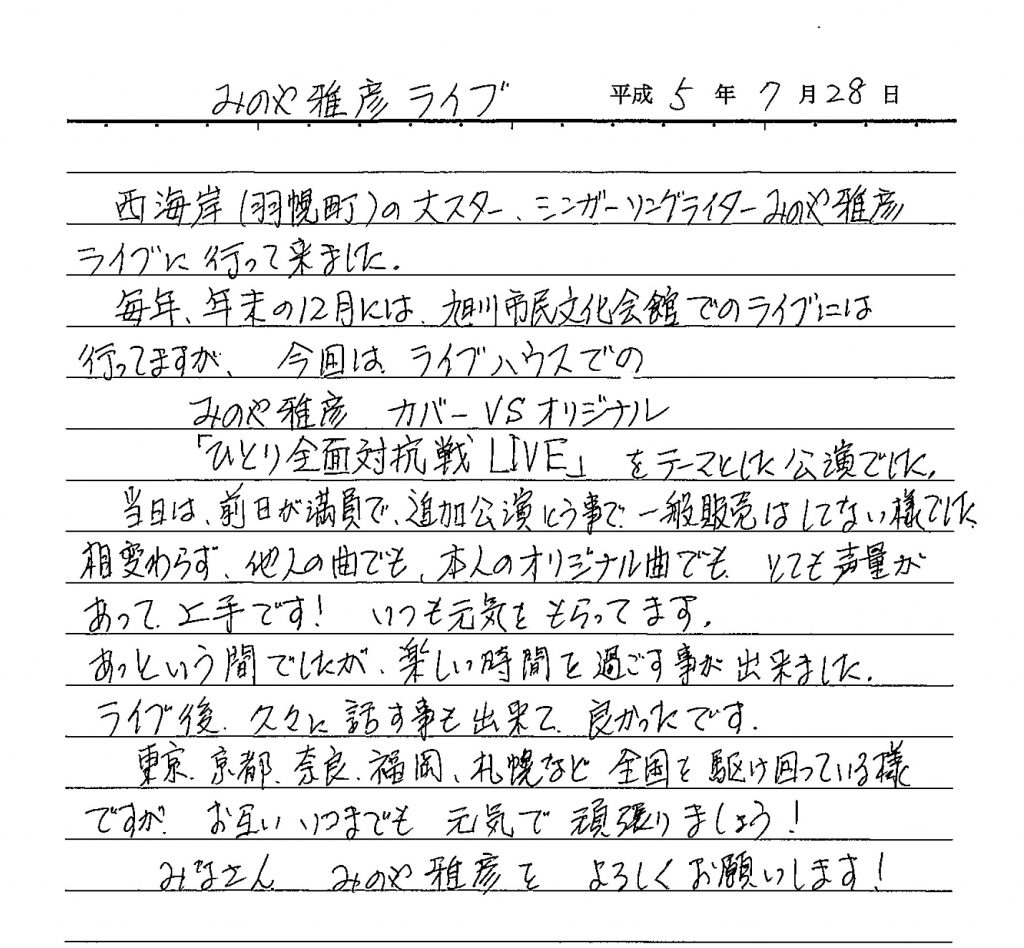 みのや雅彦ライブ 平成5年7月28日
西海岸(羽幌町)の大スター、シンガーソングライターみのや雅彦
ライブに行って来ました。
毎年、年末の12月には、旭川市民文化会館でのライブには
行ってますが、今回は、ライブハウスでの
みのや雅彦 カバーVSオリジナル
「ひとり全面対抗戦LIVE」をテーマとした公演でした。
当日は、前日が満員で、追加公演とう事で、一般販売はしてない様でした
相変わらず、他人の曲でも、本人のオリジナル曲でも、とても声量が
あって、上手です! いつも元気をもらってます。
あっという間でしたが、楽しい時間を過ごす事が出来ました。
ライブ後、久々に話す事も出来て、良かったです。
東京、京都、奈良、福岡、札幌など全国を駆け回っている様
ですが、お互いいつまでも元気で頑張りましょう!
みなさん みのや雅彦を よろしくお願いします!